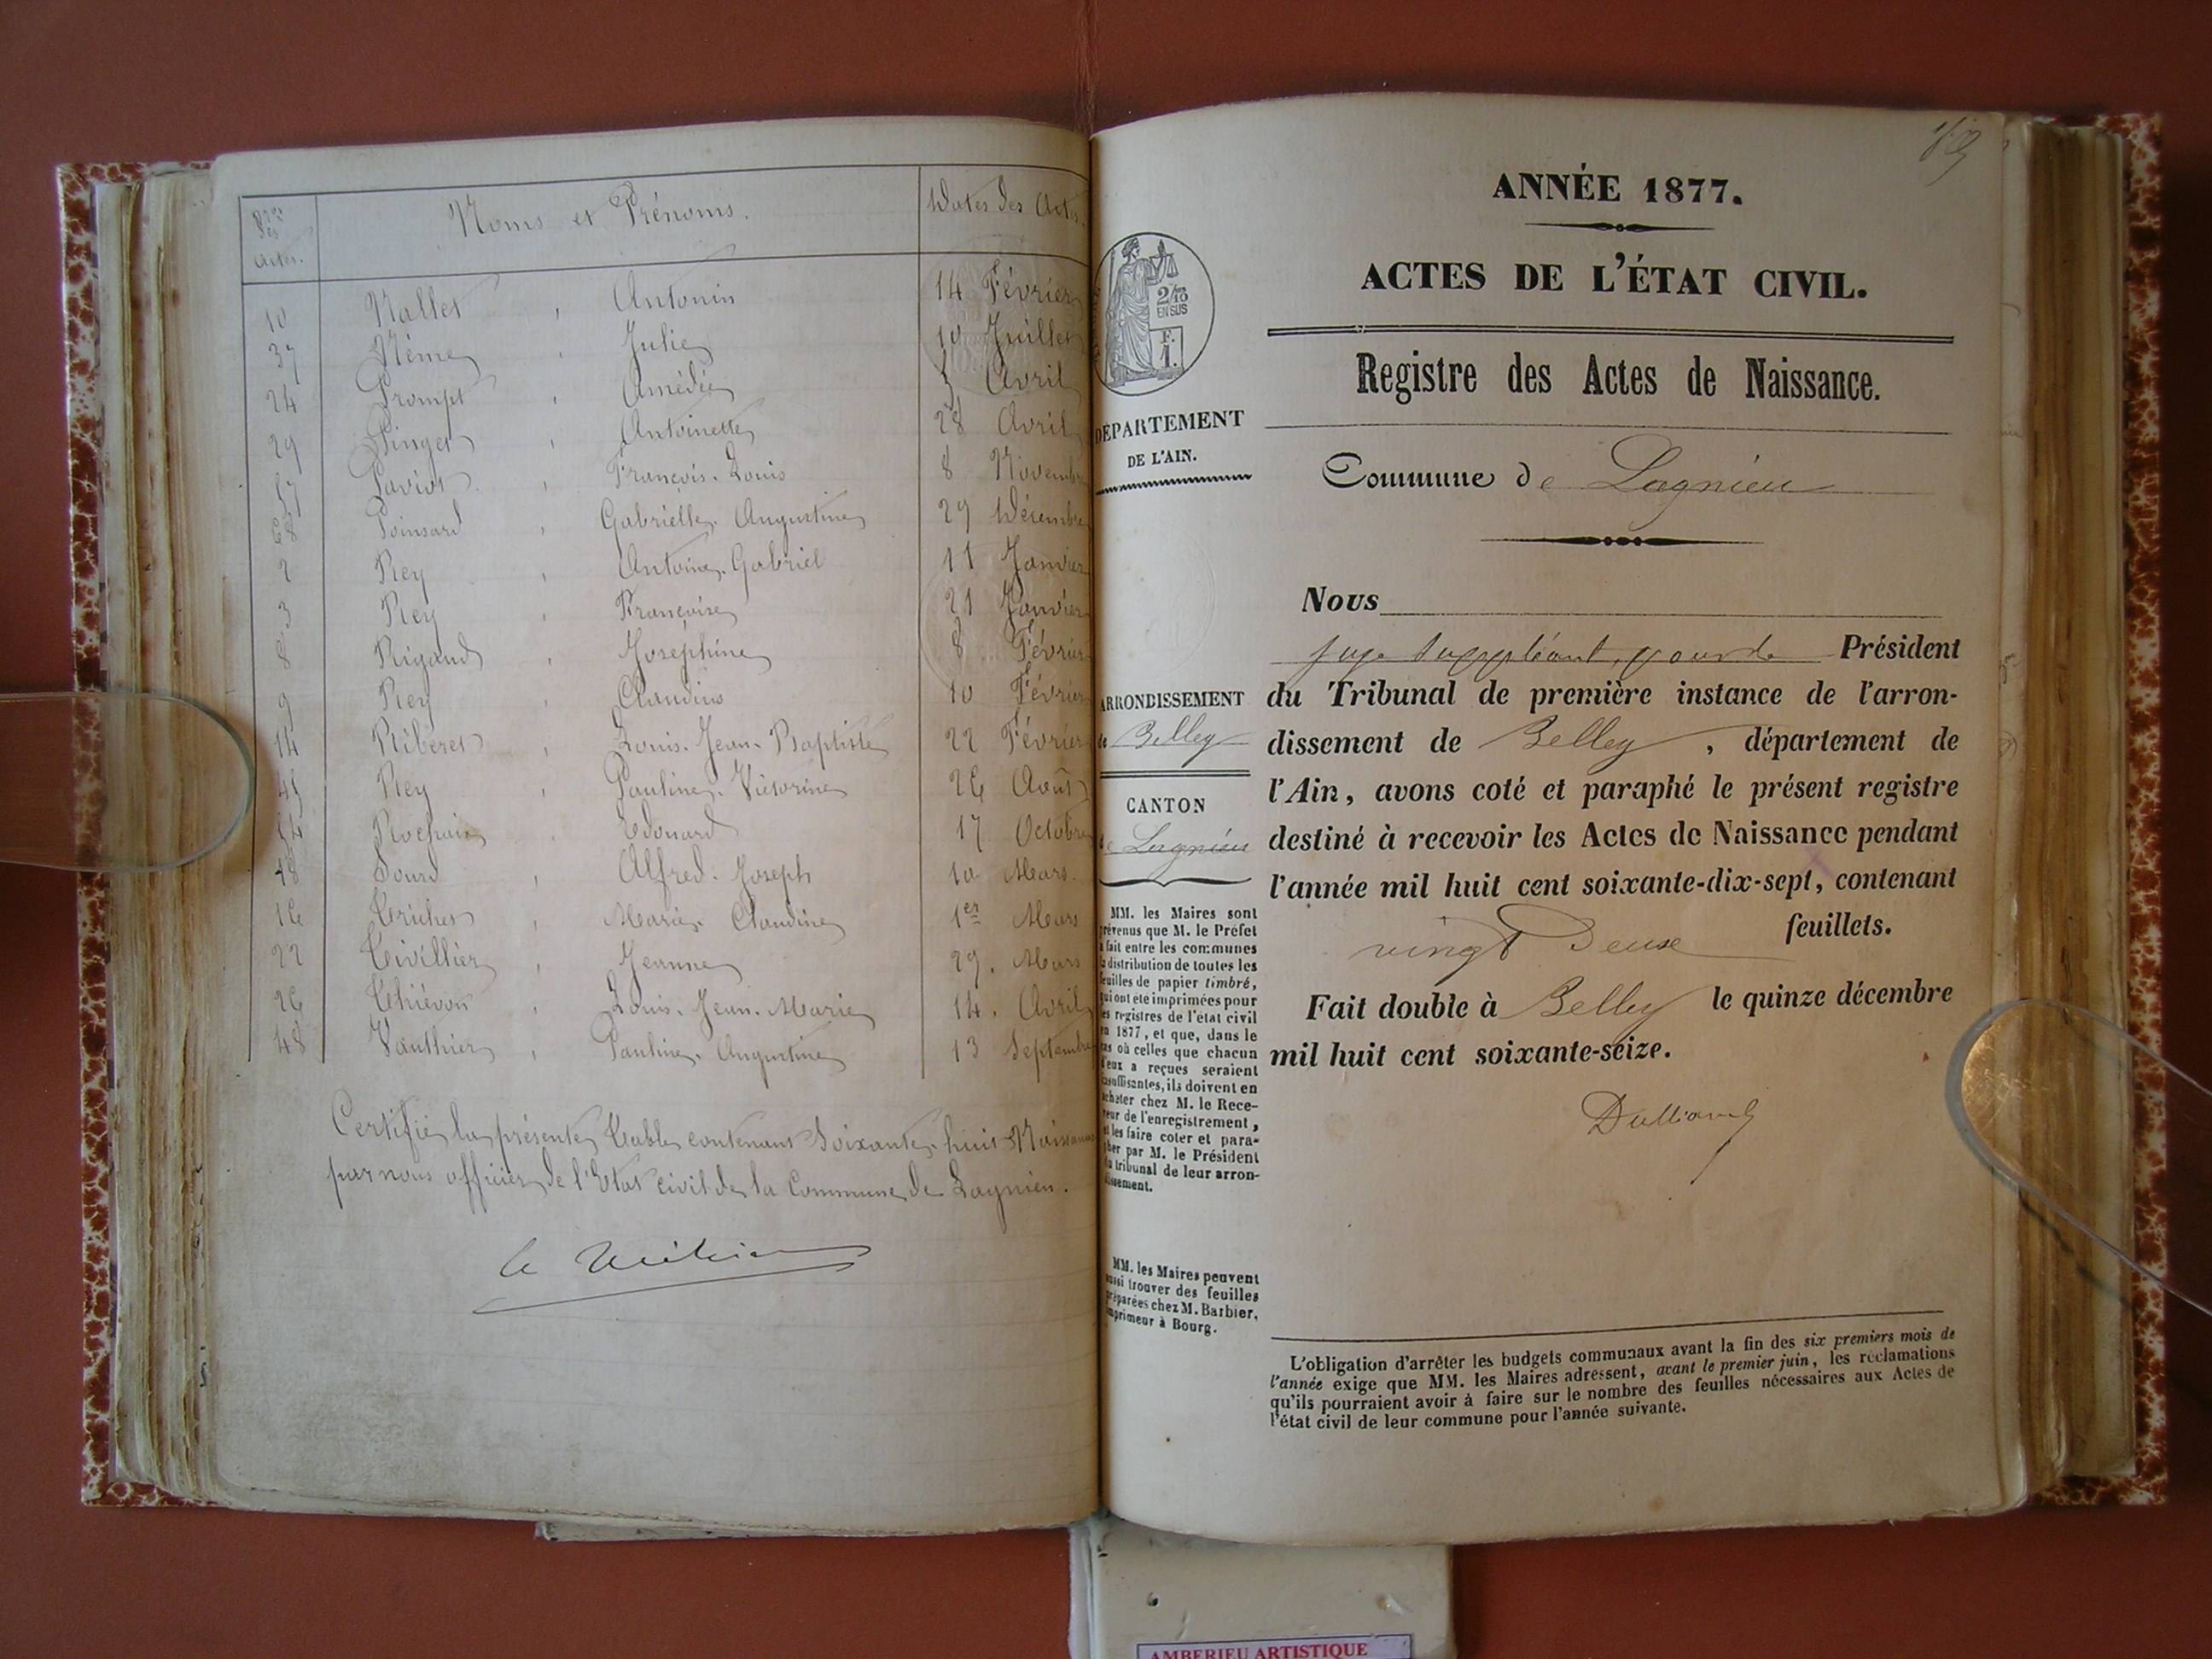 Nos des Actes.
Noms et Prénoms.
Dates des Actes.
10 Nallet, Antonin 14 Février
37 Nême, Julie 10 Juillet
24 Prompt, Amédée 3 Avril
29 Pinget, Antoinette 28 Avril
57 Paviot, François-Louis 8 Novembre
68 Poinsard, Gabrielle-Augustine 29 Décembre
2 Rey, Antoine-Gabriel 11 Janvier
3 Rey, Françoise 21 Janvier
8 Rigaud, Joséphine 8 Février
9 Rey, Claudius 10 Février
14 Riberet, Louis-Jean-Baptiste 22 Février
45 Rey, Pauline-Victorine 26 Août
54 Rochaix, Edouard 17 Octobre
18 Sourd, Alfred-Joseph 10 Mars
16 Trichet, Marie-Claudine 1er Mars
22 Tivillier, Jeanne 29 Mars
26 Thiévon, Louis-Jean-Marie 14 Avril
48 Vauthier, Pauline-Augustine 13 Septembre
Certifié la présente Table contenant Soixante-huit Naissances
par nous officier de l'Etat civil de la Commune de Lagnieu.
ANNÉE 1877.
ACTES DE L'ÉTAT CIVIL.
2/10
EN SUS
F.
1.
Registre des Actes de Naissance.
DÉPARTEMENT
DE L'AIN.
Commune de Lagnieu
Nous
juge suppléant, pour le Président
du Tribunal de première instance de l'arron-
dissement de Belley, département de
l'Ain, avons coté et paraphé le présent registre
destiné à recevoir les Actes de Naissance pendant
l'année mil huit cent soixante-dix-sept, contenant
vingt Deux feuillets.
Fait double à Belley le quinze décembre
mil huit cent soixante-seize.
ARRONDISSEMENT
de Belley
CANTON
de Lagnieu
MM. les Maires sont
prévenus que M. le Préfet
a fait entre les communes
la distribution de toutes les
feuilles de papier timbré,
qui ont été imprimées pour
les registres de l'état civil
en 1877, et que, dans le
cas où celles que chacun
d'eux a reçues seraient
insuffisantes, ils doivent en
acheter chez M. le Rece-
veur de l'enregistrement,
et les faire coter et para-
pher par M. le Président
du tribunal de leur arron-
dissement.
MM. les Maires peuvent
aussi trouver des feuilles
préparées chez M. Barbier,
imprimeur à Bourg.
L'obligation d'arrêter les budgets communaux avant la fin des six premiers mois de
l'année exige que MM. les Maires adressent, avant le premier juin, les réclamations
qu'ils pourraient avoir à faire sur le nombre des feuilles nécessaires aux Actes de
l'état civil de leur commune pour l'année suivante.
AMBERIEU ARTISTIQUE